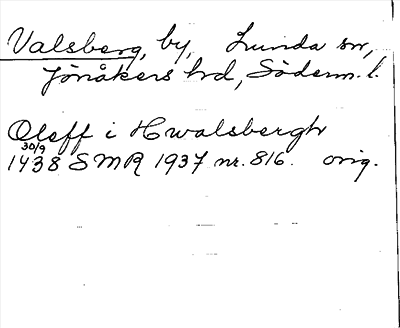 Valsberg, by, Lunda sn,
Jönåkers hd, Söderm. l.
Oleff i Hwalsbergh
30/9
1438 SMR 1937 nr. 816. orig.